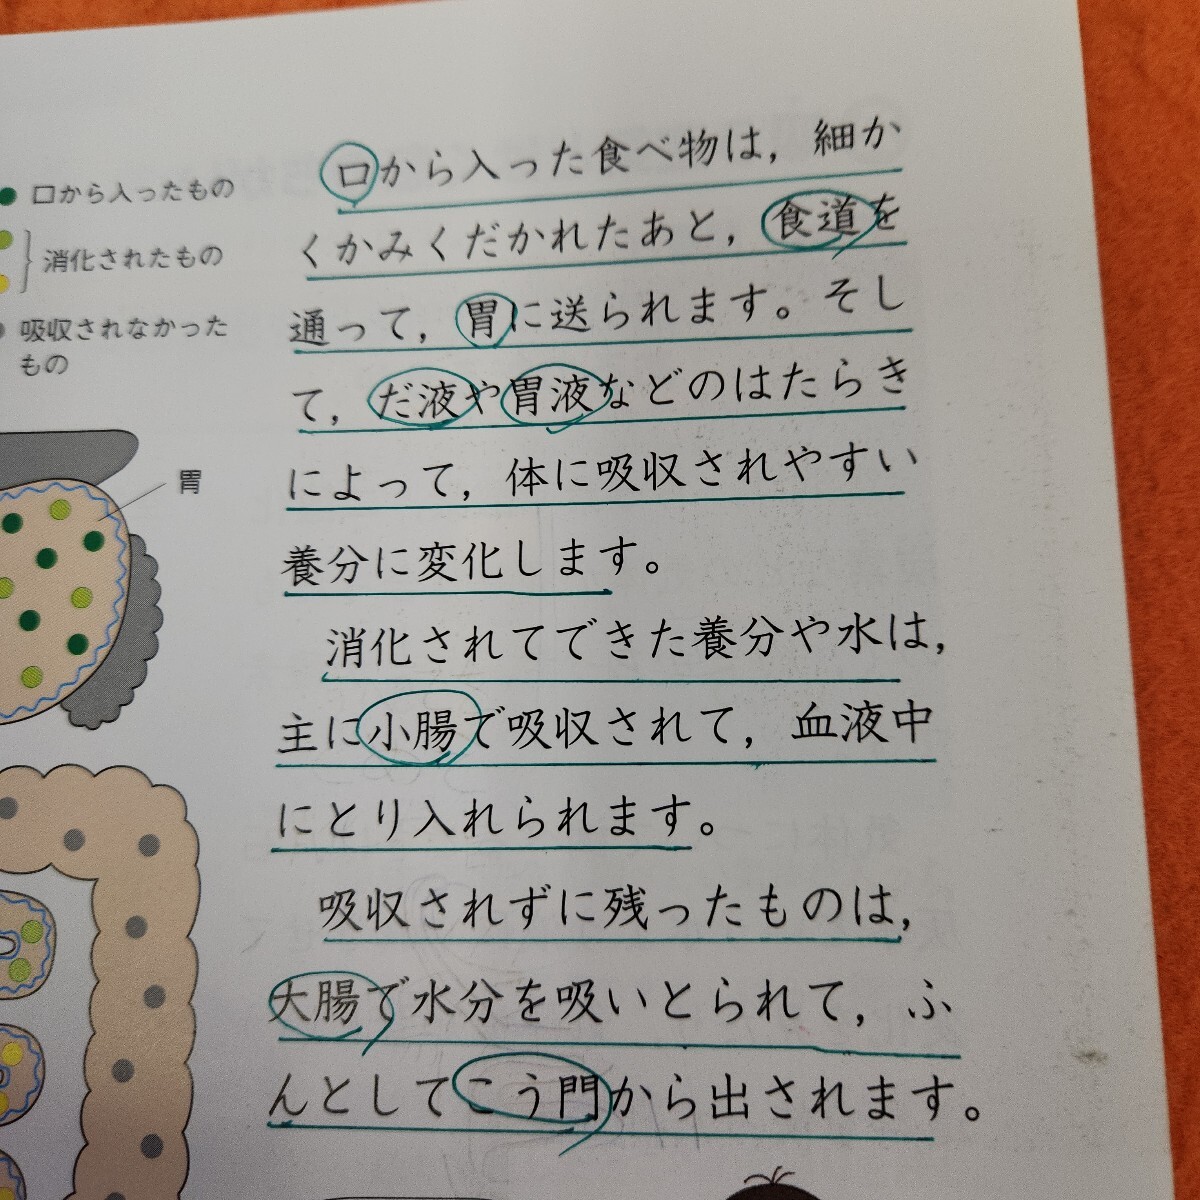 口から入ったもの
消化されたもの
吸収されなかった
もの
胃
口から入った食べ物は，細か
くかみくだかれたあと，食道を
通って，胃に送られます。そし
て，だ液や胃液などのはたらき
によって，体に吸収されやすい
養分に変化します。
消化されてできた養分や水は，
主に小腸で吸収されて，血液中
にとり入れられます。
吸収されずに残ったものは，
大腸で水分を吸いとられて，ふ
んとしてこう門から出されます。